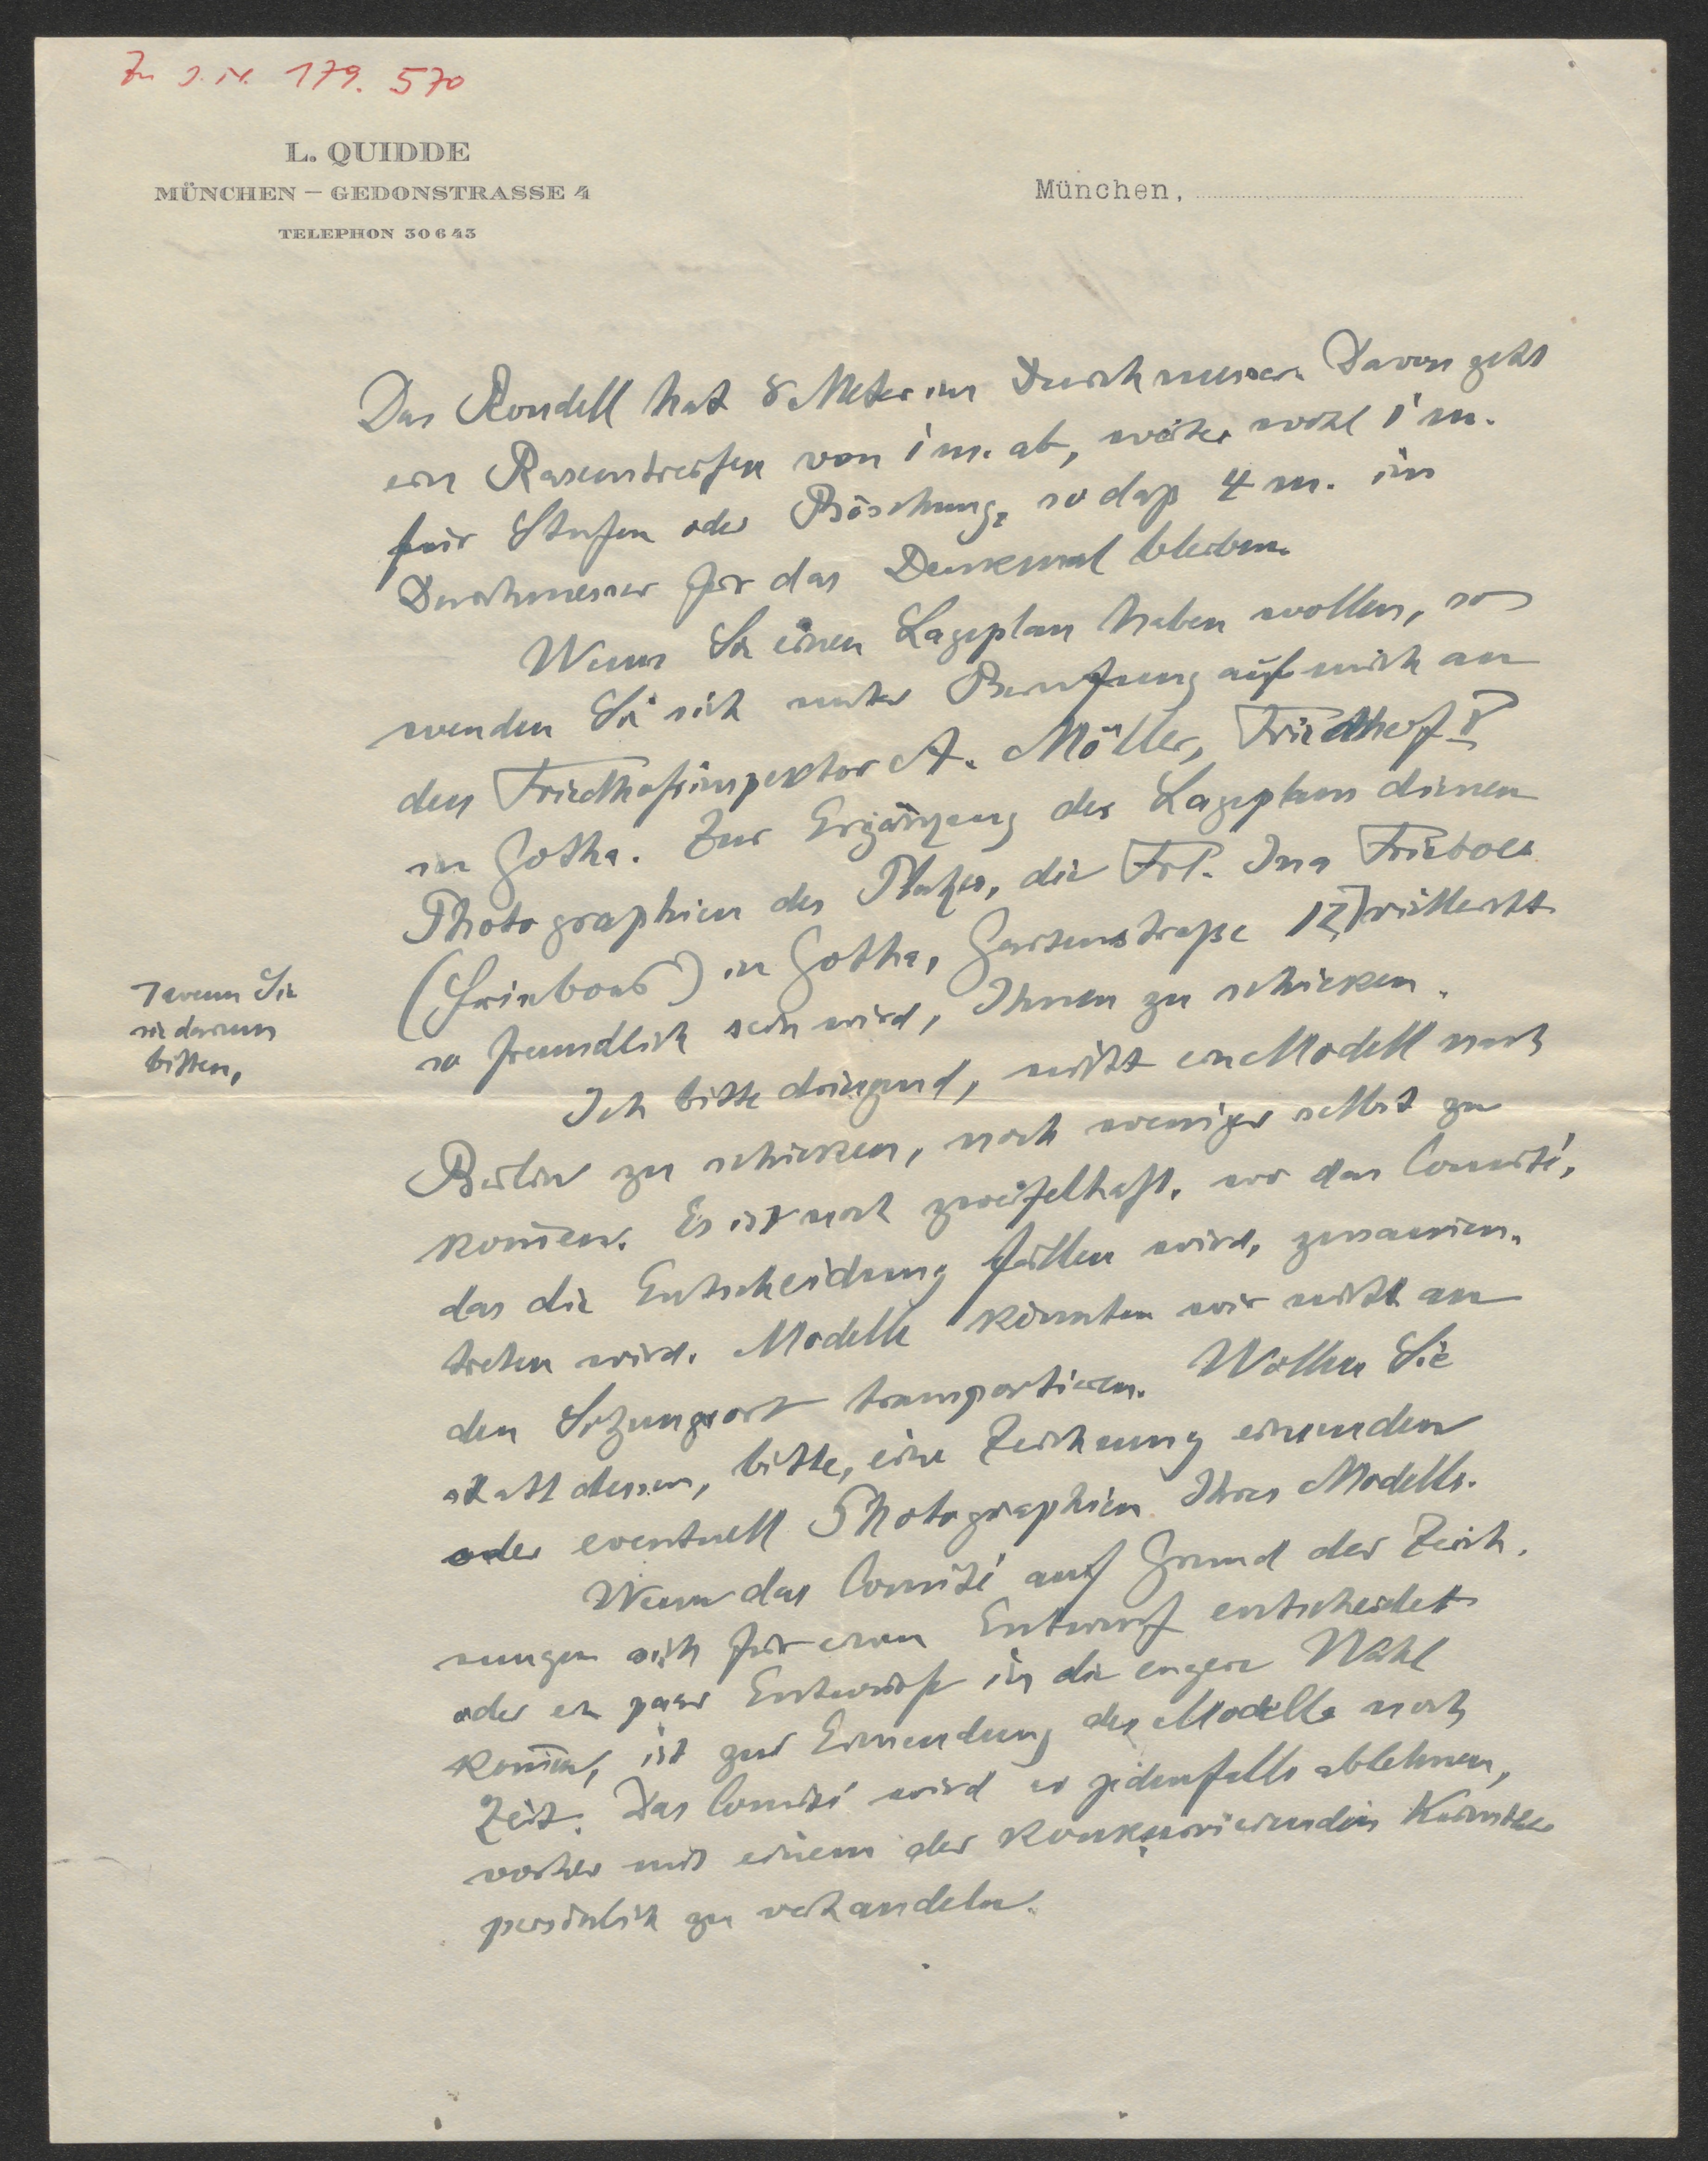 Zu J. N. 179. 570
L. QUIDDE
MÜNCHEN – GEDONSTRASSE 4
TELEPHON 30643
München,
Das Rondell hat 8 Meter im Durchmesser. Davon geht
ein Rasenstreifen von 1 m. ab, weiter wohl 1 m.
für Stufen oder Böschung, so daß 4 m. im
Durchmesser für das Denkmal bleiben.
Wenn Sie einen Lageplan haben wollen, so
wenden Sie sich unter Berufung auf mich an
den Friedhofsinspektor A. Möller, Friedhof V
in Gotha. Zur Ergänzung des Lageplans dienen
Photographien des Platzes, die Frl. Ina Frieboes
(Frieboes) in Gotha, Gartenstraße 12, ⌉ vielleicht
so freundlich sein wird, Ihnen zu schicken.
⌉ wenn Sie
sie darum
bitten,
Ich bitte dringend, nicht ein Modell nach
Berlin zu schicken, noch weniger selbst zu
kom̄en. Es ist noch zweifelhaft, wo das Comité,
das die Entscheidung fällen wird, zusam̄en-
treten wird. Modelle könnten wir nicht an
den Sitzungsort transportieren. Wollen Sie
statt dessen, bitte, eine Zeichnung einsenden
oder eventuell Photographien Ihres Modells.
Wenn das Comité auf Grund der Zeich-
nungen sich für einen Entwurf entscheidet
oder ein paar Entwürfe in die engere Wahl
kom̄en, ist zur Einsendung der Modelle noch
Zeit. Das Comité wird es jedenfalls ablehnen,
vorher mit einem der konkurrierenden Künstler
persönlich zu verhandeln.